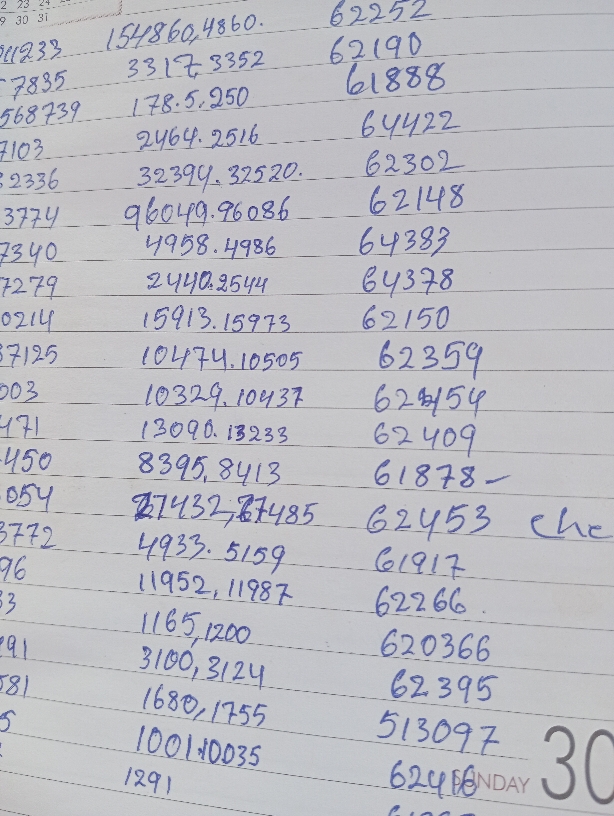 2 23 24
9 30 31
154860,4860. 62252
41233 3317,3352 62190
7835 178.5,250 61888
568739 2464.2516 64422
7103 32394.32520. 62302
32336 96049.96086 62148
3774 4958.4986 64383
7340 2440.2544 64378
7279 15913.15973 62150
0214 10474.10505 62359
37125 10329.10437 62454
003 13090.13233 62409
471 8395,8413 61878-
450 67432,67485 62453 che
054 4933.5159 61917
3772 11952,11987 62266.
96 1165,1200 620366
3 3100,3124 62395
191 1680,1755 513097
581 10010035 62416
5 1291
SUNDAY 30